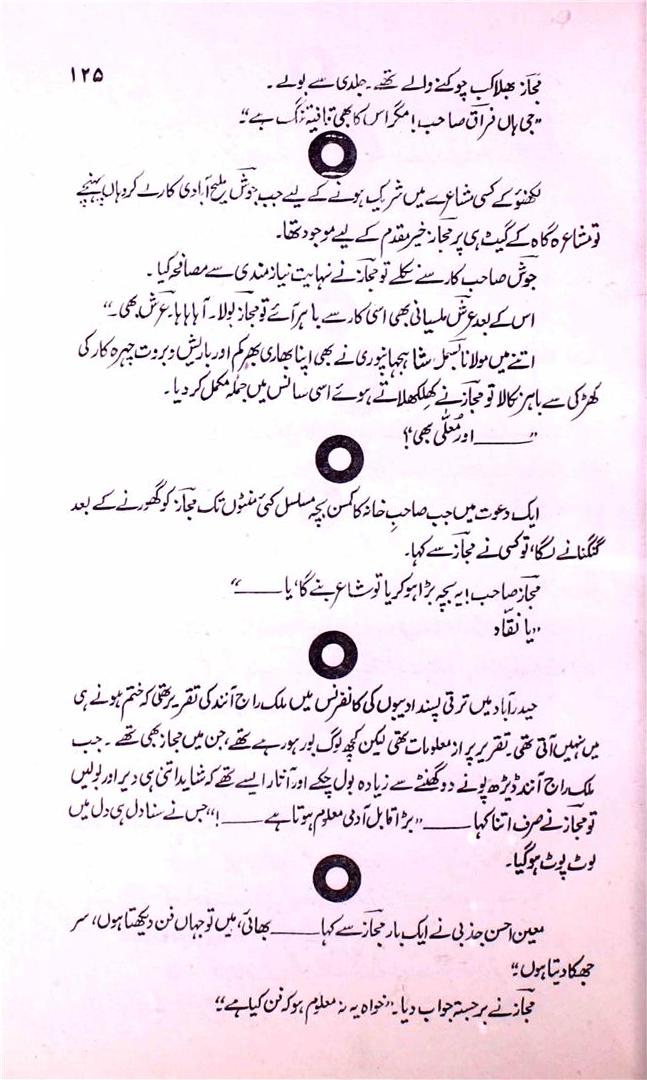 ۱۲۵
مجاز بھلا کب چوکنے والے تھے۔ جلدی سے بولے۔
”جی ہاں فراق صاحب! مگر اس کا بھی قافیہ تنگ ہے“
لکھنؤ کے کسی مشاعرے میں شریک ہونے کے لیے جب جوش ملیح آبادی کار لے کر وہاں پہنچے
تو مشاعرہ گاہ کے گیٹ ہی پر مجاز خیر مقدم کے لیے موجود تھا۔
جوش صاحب کار سے نکلے تو مجاز نے نہایت نیاز مندی سے مصافحہ کیا۔
اس کے بعد عرش ملسیانی بھی اسی کار سے باہر آئے تو مجاز بولا۔ آہاہاہا۔ عرش بھی۔“
اتنے میں مولانا بسمل شاہجہانپوری نے بھی اپنا بھاری بھرکم اور باریش و بروت چہرہ کار کی
کھڑکی سے باہر نکالا تو مجاز نے کھلکھلاتے ہوئے اسی سانس میں جملہ مکمل کر دیا۔
”——— اور معلّٰی بھی“؟
ایک دعوت میں جب صاحبِ خانہ کا کمسن بچہ مسلسل کئی منٹوں تک مجاز کو گھورنے کے بعد
گنگنانے لگا، تو کسی نے مجاز سے کہا۔
مجاز صاحب! یہ بچہ بڑا ہو کر یا تو شاعر بنے گا‘ یا ———“
”یا نقّاد
حیدرآباد میں ترقی پسند ادیبوں کی کانفرنس میں ملک راج آنند کی تقریر تھی کہ ختم ہونے ہی
میں نہیں آتی تھی۔ تقریر پر از معلومات تھی لیکن کچھ لوگ بور ہو رہے تھے، جن میں مجاز بھی تھے۔ جب
ملک راج آنند ڈیڑھ پونے دو گھنٹے سے زیادہ بول چکے اور آثار ایسے تھے کہ شاید اتنی ہی دیر اور بولیں
تو مجاز نے صرف اتنا کہا ——— ”بڑا قابل آدمی معلوم ہوتا ہے ———!“ جس نے سنا دل ہی دل میں
لوٹ پوٹ ہو گیا۔
معین احسن جذبی نے ایک بار مجاز سے کہا ——— بھائی، میں تو جہاں فن دیکھتا ہوں، سر
جھکا دیتا ہوں“
مجاز نے برجستہ جواب دیا۔ ”خواہ یہ نہ معلوم ہو کہ فن کیا ہے“